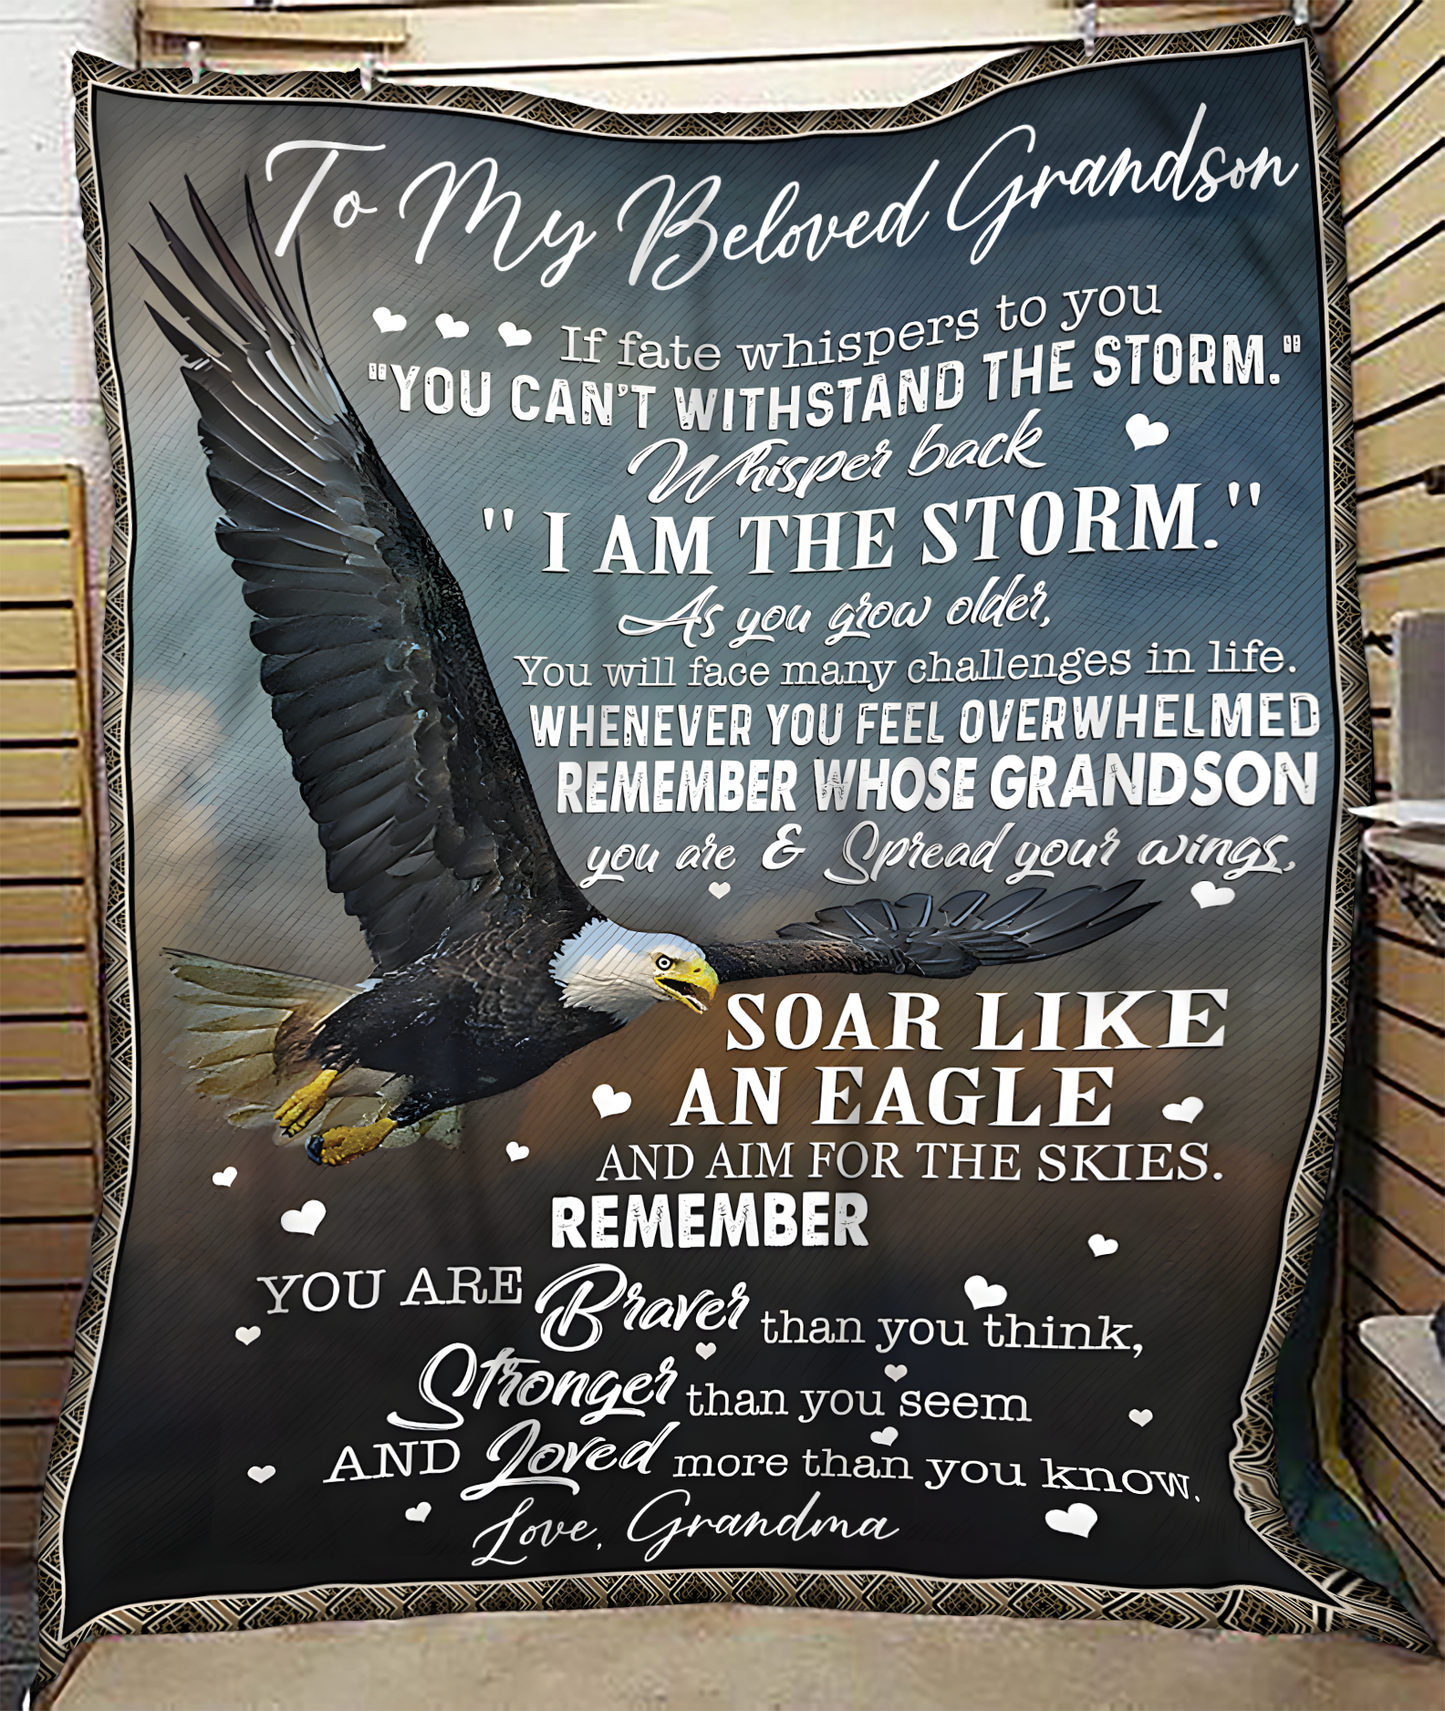 To My Beloved Grandson
If fate whispers to you
"YOU CAN'T WITHSTAND THE STORM."
Whisper back
" I AM THE STORM."
As you grow older,
You will face many challenges in life.
WHENEVER YOU FEEL OVERWHELMED
REMEMBER WHOSE GRANDSON
you are & Spread your wings,
SOAR LIKE
AN EAGLE
AND AIM FOR THE SKIES.
REMEMBER
YOU ARE Braver than you think,
Stronger than you seem
AND Loved more than you know.
Love, Grandma